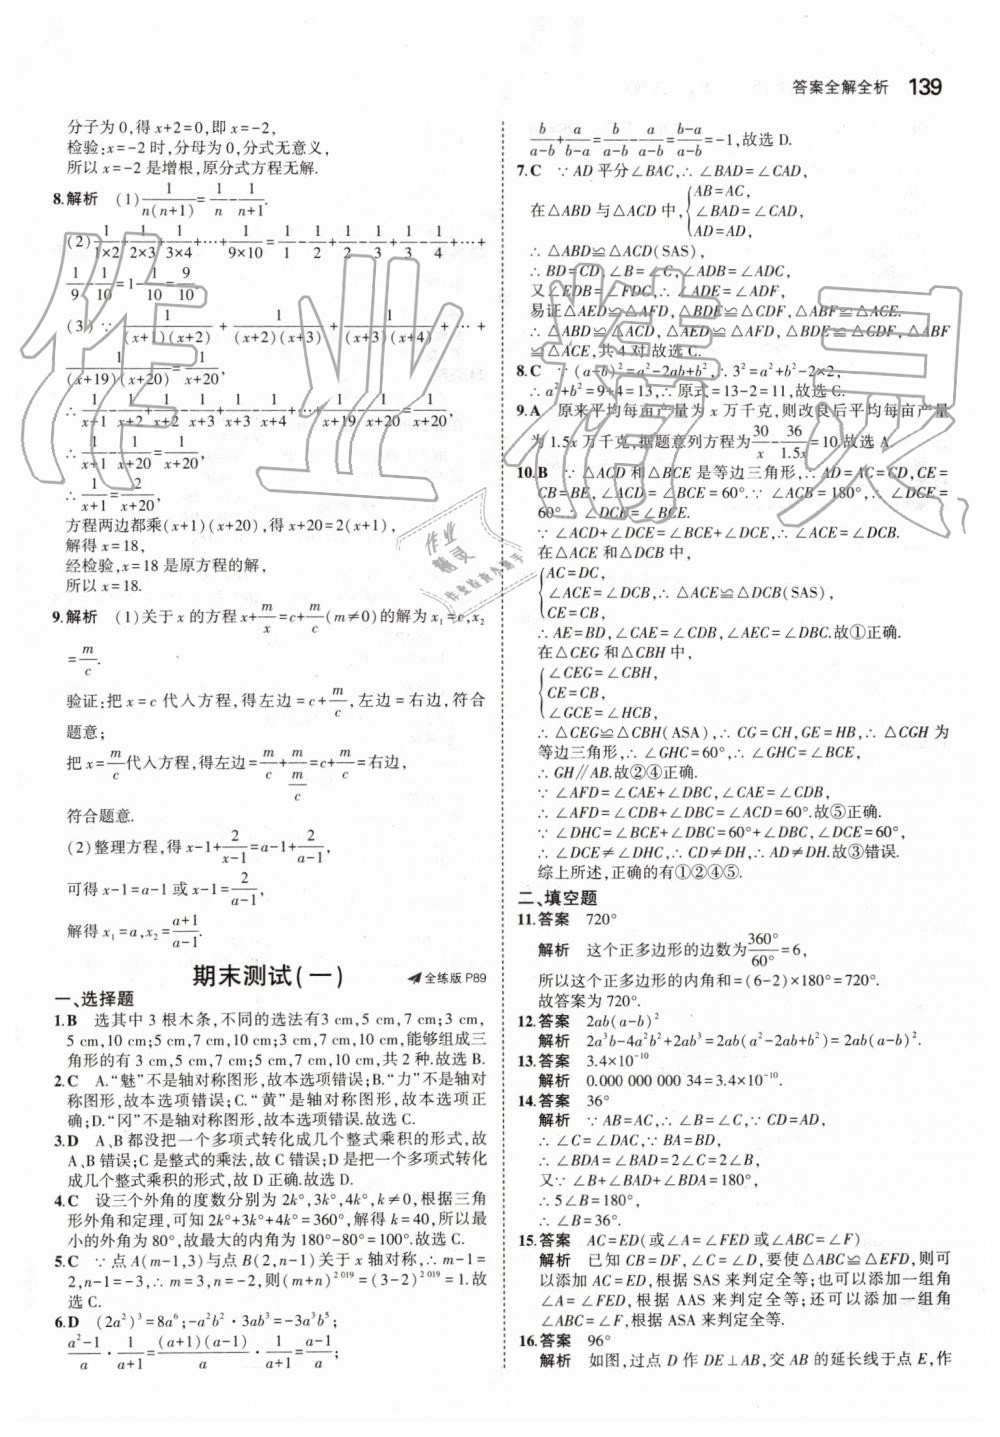 答案全解全析 139
分子为0,得x+2=0,即x=-2,
检验:x=-2时,分母为0,分式无意义,
所以x=-2是增根,原分式方程无解.
8.解析 (1) 1/(n(n+1)) = 1/n - 1/(n+1).
(2) 1/(1×2)+1/(2×3)+1/(3×4)+…+1/(9×10)=1/1-1/2+1/2-1/3+1/3-1/4+…+
1/9-1/10=1-1/10=9/10.
(3)∵ 1/((x+1)(x+2)) + 1/((x+2)(x+3)) + 1/((x+3)(x+4)) +…+
1/((x+19)(x+20)) = 1/(x+20),
∴ 1/(x+1)-1/(x+2)+1/(x+2)-1/(x+3)+1/(x+3)-1/(x+4)+…+1/(x+19)-1/(x+20)=1/(x+20),
∴ 1/(x+1)-1/(x+20)=1/(x+20),
∴ 1/(x+1)=2/(x+20),
方程两边都乘(x+1)(x+20),得x+20=2(x+1),
解得x=18,
经检验,x=18是原方程的解,
所以x=18.
9.解析 (1)关于x的方程x+m/x=c+m/c(m≠0)的解为x₁=c,x₂
=m/c.
验证:把x=c代入方程,得左边=c+m/c,左边=右边,符合
题意;
把x=m/c代入方程,得左边=m/c+m/(m/c)=c+m/c=右边,
符合题意.
(2)整理方程,得x-1+2/(x-1)=a-1+2/(a-1),
可得x-1=a-1或x-1=2/(a-1),
解得x₁=a,x₂=(a+1)/(a-1).
期末测试(一) 全练版P89
一、选择题
1.B 选其中3根木条,不同的选法有3 cm,5 cm,7 cm;3 cm,
5 cm,10 cm;5 cm,7 cm,10 cm;3 cm,7 cm,10 cm,能够组成三
角形的有3 cm,5 cm,7 cm;5 cm,7 cm,10 cm,共2种.故选B.
2.C A.“魅”不是轴对称图形,故本选项错误;B.“力”不是轴对
称图形,故本选项错误;C.“黄”是轴对称图形,故本选项正
确;D.“冈”不是轴对称图形,故本选项错误.故选C.
3.D A、B都没把一个多项式转化成几个整式乘积的形式,故
A、B错误;C是整式的乘法,故C错误;D是把一个多项式转化
成几个整式乘积的形式,故D正确.故选D.
4.C 设三个外角的度数分别为2k°,3k°,4k°,k≠0,根据三角
形外角和定理,可知2k°+3k°+4k°=360°,解得k=40,所以最
小的外角为80°,故最大的内角为180°-80°=100°.故选C.
5.C ∵点A(m-1,3)与点B(2,n-1)关于x轴对称,∴m-1=
2,n-1=-3,∴m=3,n=-2,则(m+n)²⁰¹⁹=(3-2)²⁰¹⁹=1.故
选C.
6.D (2a²)³=8a⁶;-a²b²·3ab³=-3a³b⁵;
(a²-1)/a·1/(a+1)=(a+1)(a-1)/a·1/(a+1)=(a-1)/a;
b/(a-b)+a/(b-a)=b/(a-b)-a/(a-b)=(b-a)/(a-b)=-1,故选D.
7.C ∵AD平分∠BAC,∴∠BAD=∠CAD,
在△ABD与△ACD中,{AB=AC,
∠BAD=∠CAD,
AD=AD,
∴△ABD≌△ACD(SAS),
∴BD=CD,∠B=∠C,∠ADB=∠ADC,
又∠EDB=∠FDC,∴∠ADE=∠ADF,
易证△AED≌△AFD,△BDE≌△CDF,△ABF≌△ACE.
∴△ABD≌△ACD,△AED≌△AFD,△BDE≌△CDF,△ABF
≌△ACE,共4对.故选C.
8.C ∵(a-b)²=a²-2ab+b²,∴3²=a²+b²-2×2,
∴a²+b²=9+4=13,∴原式=13-2=11,故选C.
9.A 原来平均每亩产量为x万千克,则改良后平均每亩产量
为1.5x万千克,据题意列方程为30/x-36/1.5x=10.故选A.
10.B ∵△ACD和△BCE是等边三角形,∴AD=AC=CD,CE=
CB=BE,∠ACD=∠BCE=60°.∵∠ACB=180°,∴∠DCE=
60°.∴∠DCE=∠BCE.
∵∠ACD+∠DCE=∠BCE+∠DCE,∴∠ACE=∠DCB.
在△ACE和△DCB中,
{AC=DC,
∠ACE=∠DCB,∴△ACE≌△DCB(SAS),
CE=CB,
∴AE=BD,∠CAE=∠CDB,∠AEC=∠DBC.故①正确.
在△CEG和△CBH中,
{∠CEG=∠CBH,
CE=CB,
∠GCE=∠HCB,
∴△CEG≌△CBH(ASA),∴CG=CH,GE=HB,∴△CGH为
等边三角形,∴∠GHC=60°,∴∠GHC=∠BCE,
∴GH∥AB.故②④正确.
∵∠AFD=∠CAE+∠DBC,∠CAE=∠CDB,
∴∠AFD=∠CDB+∠DBC=∠ACD=60°.故⑤正确.
∵∠DHC=∠BCE+∠DBC=60°+∠DBC,∠DCE=60°,
∴∠DCE≠∠DHC,∴CD≠DH,∴AD≠DH.故③错误.
综上所述,正确的有①②④⑤.
二、填空题
11.答案 720°
解析 这个正多边形的边数为360°/60°=6,
所以这个正多边形的内角和=(6-2)×180°=720°.
故答案为720°.
12.答案 2ab(a-b)²
解析 2a³b-4a²b²+2ab³=2ab(a²-2ab+b²)=2ab(a-b)².
13.答案 3.4×10⁻¹⁰
解析 0.000 000 000 34=3.4×10⁻¹⁰.
14.答案 36°
解析 ∵AB=AC,∴∠B=∠C,∵CD=AD,
∴∠C=∠DAC,∵BA=BD,
∴∠BDA=∠BAD=2∠C=2∠B,
又∵∠B+∠BAD+∠BDA=180°,
∴5∠B=180°,
∴∠B=36°.
15.答案 AC=ED(或∠A=∠FED或∠ABC=∠F)
解析 已知CB=DF,∠C=∠D,要使△ABC≌△EFD,则可
以添加AC=ED,根据SAS来判定全等;也可以添加一组角
∠A=∠FED,根据AAS来判定全等;还可以添加一组角
∠ABC=∠F,根据ASA来判定全等.
16.答案 96°
解析 如图,过点D作DE⊥AB,交AB的延长线于点E,作
作业精灵
作业
精灵